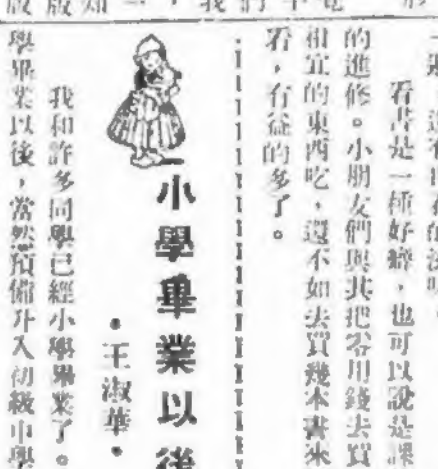 看書是一種好癖，也可以說是課
的進修。小朋友們與其把零用錢去買
相宜的東西吃，還不如去買幾本書來
看，有益的多了。
小學畢業以後
•王淑華•
我和許多同學已經小學畢業了。
學畢業以後，當然預備升入初級中學